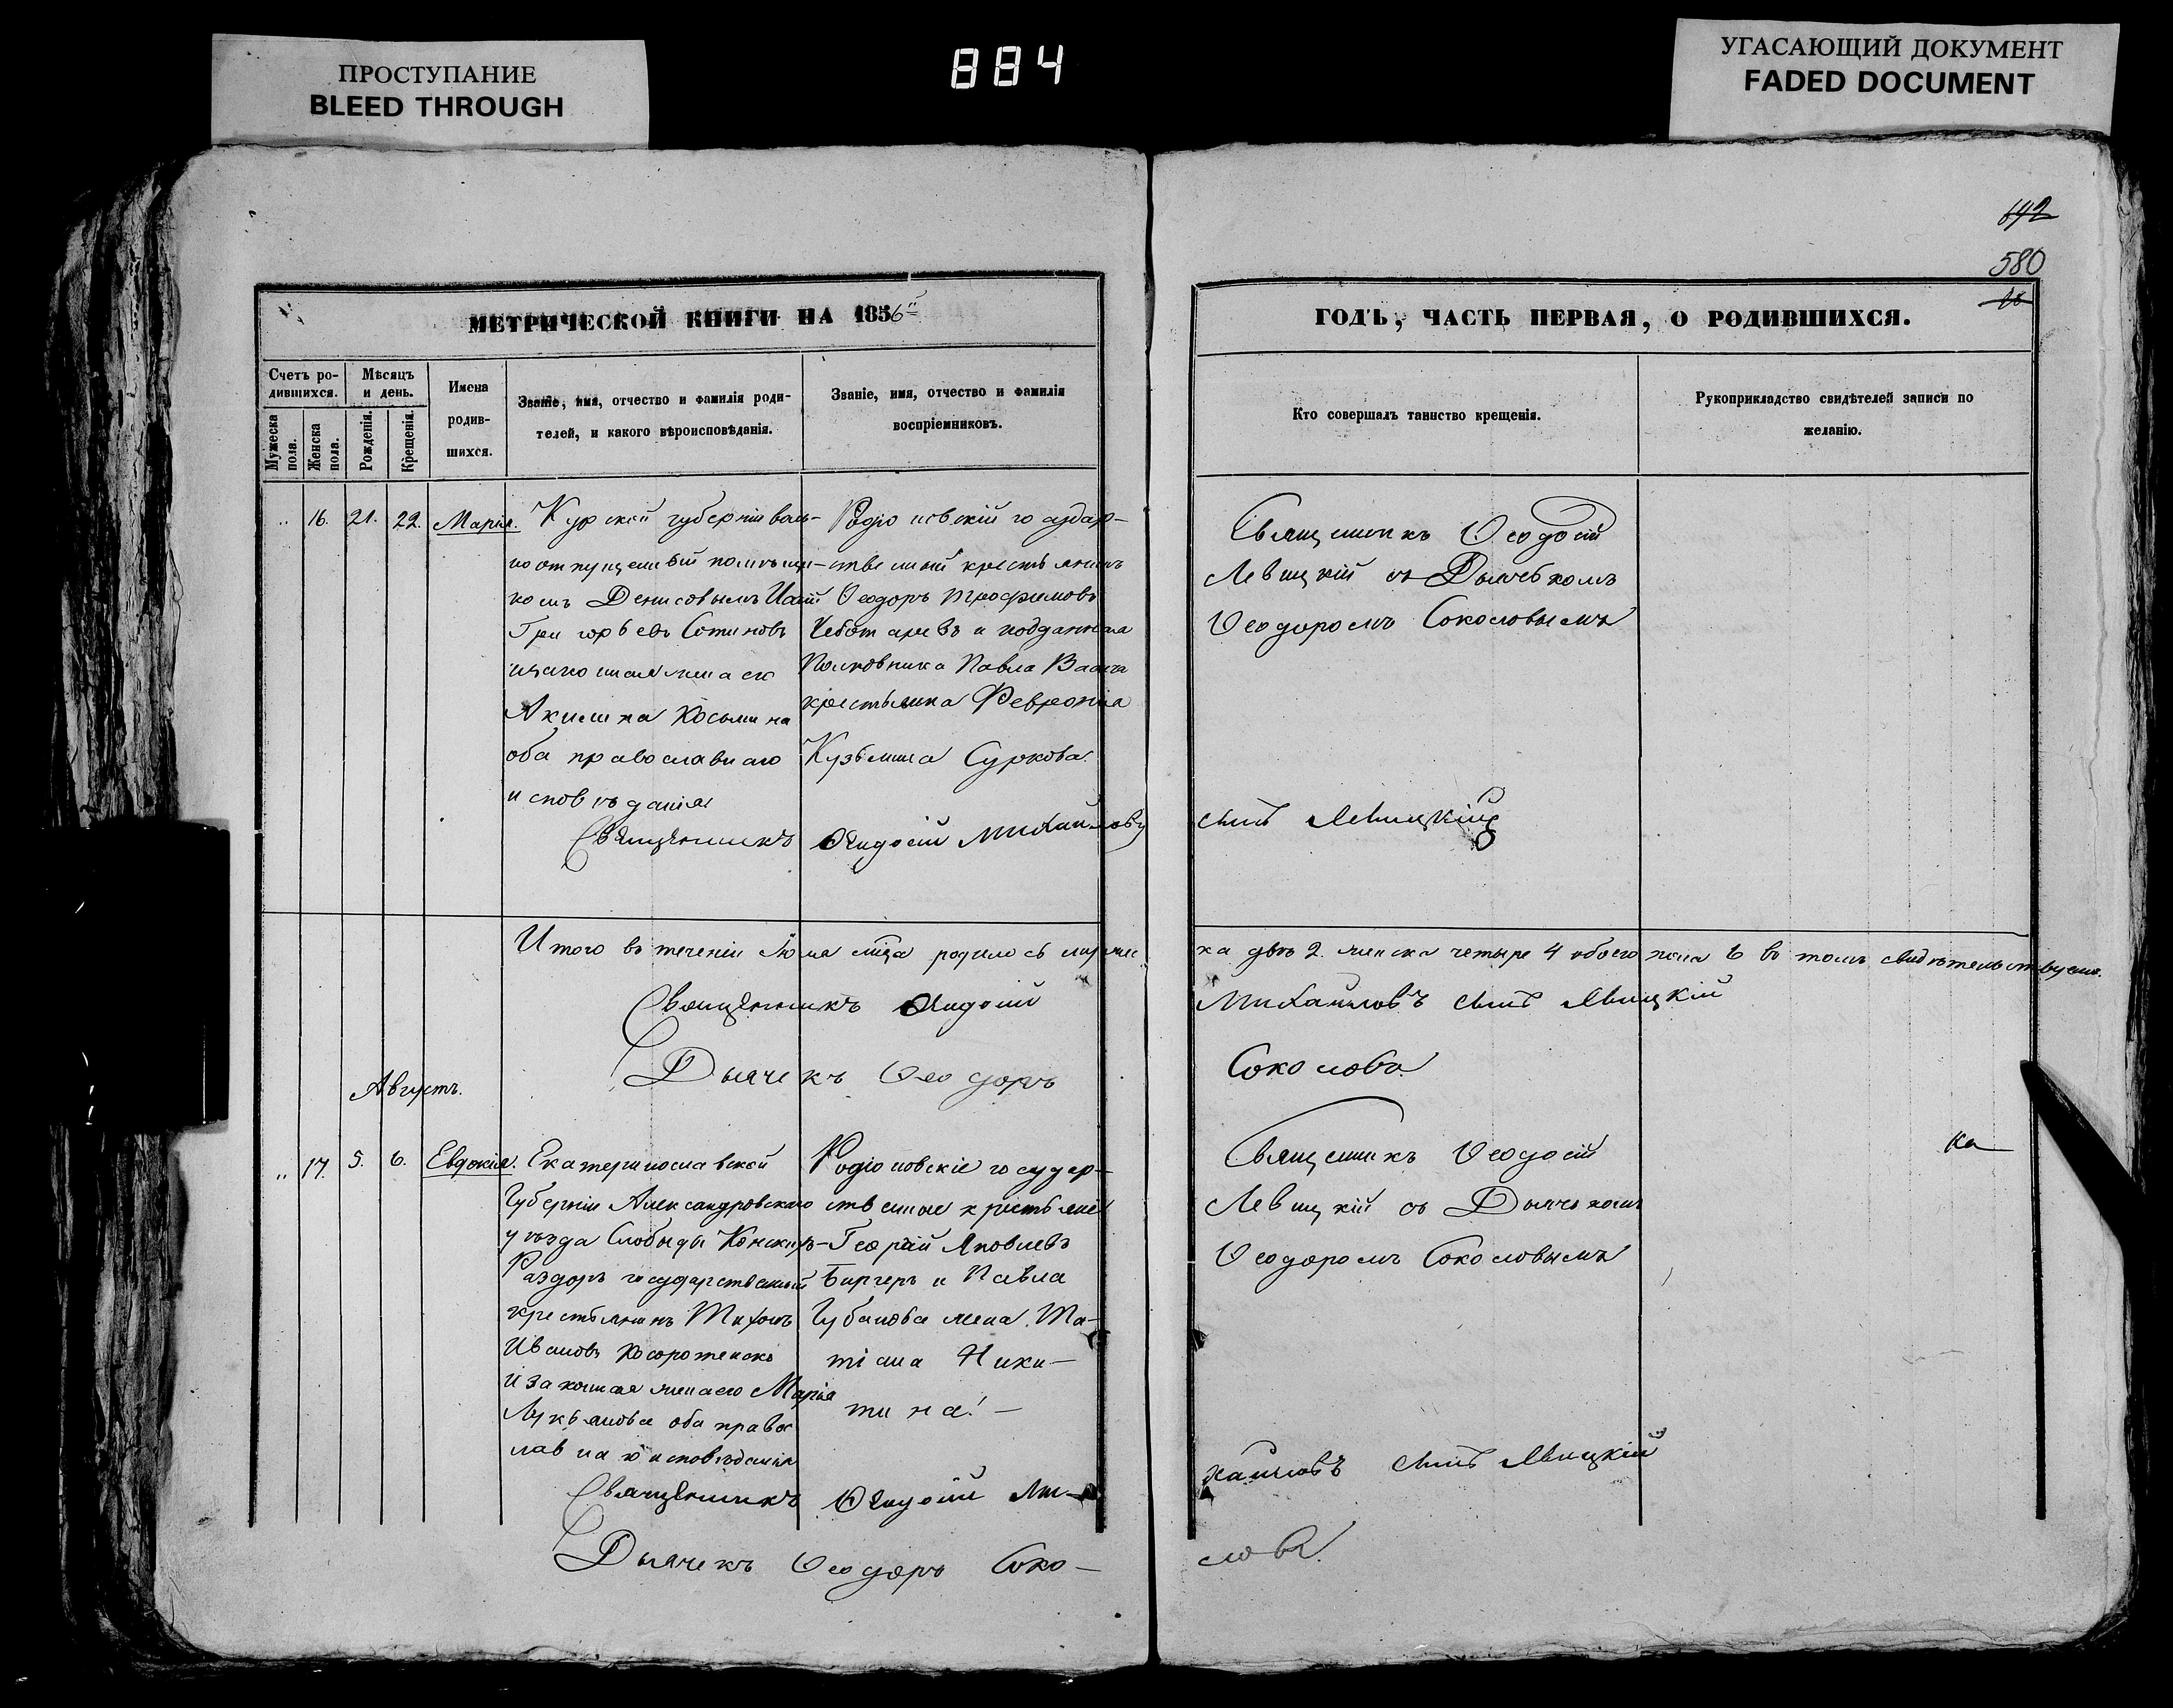 ПРОСТУПАНИЕ
BLEED THROUGH
884
УГАСАЮЩИЙ ДОКУМЕНТ
FADED DOCUMENT
642
580
МЕТРИЧЕСКОЙ КНИГИ НА 1856
ГОДЪ, ЧАСТЬ ПЕРВАЯ, О РОДИВШИХСЯ.
Счетъ ро-
дившихся.
Мужеска
пола.
Женска
пола.
Мѣсяцъ
и день.
Рожденія.
Крещенія.
Имена
родив-
шихся.
Званіе, имя, отчество и фамилія роди-
телей, и какого вѣроисповѣданія.
Званіе, имя, отчество и фамилія
воспріемниковъ.
Кто совершалъ таинство крещенія.
Рукоприкладство свидѣтелей записи по
желанію.
16. 21. 22. Марія.
Курской губерніи воль-
но отпущенный помѣщи-
комъ Денисовымъ
Григорьевъ Сотниковъ
и законная жена его
Акилина Косьмина
оба православнаго
исповѣданія
Родіоновскій государ-
ственный крестьянинъ
Ѳеодоръ Трофимовъ
Чеботаревъ и подданная
Полковника Павла
крестьянка Февронія
Кузьмина Суркова.
Священникъ Ѳеодосій
Левицкій съ Дьячкомъ
Ѳеодоромъ Соколовымъ
Священникъ Ѳеодосій Михайловъ
сынъ Левицкій
Итого въ теченіи Іюля мца родилось мужес
ка два 2. женска четыре 4 обоего пола 6 въ томъ свидѣтельствуемъ.
Священникъ Ѳеодосій
Михайловъ сынъ Левицкій
Дьячекъ Ѳеодоръ
Соколовъ
Августъ.
17. 5. 6. Евдокія.
Екатеринославской
Губерніи Александровскаго
уѣзда Слободы Конскихъ-
Раздоръ государственный
крестьянинъ Тихонъ
Ивановъ
и законная жена его Марія
Лукьянова оба право
славнаго исповѣданія
Родіоновскіе государ-
ственные крестьяне
Георгій Яковлевъ
и Павла
Губанова жена Та-
тіана Ники-
тина! —
Священникъ Ѳеодосій
Левицкій съ Дьячкомъ
Ѳеодоромъ Соколовымъ
Ка
Священникъ Ѳеодосій Ми-
хайловъ сынъ Левицкій
Дьячекъ Ѳеодоръ Соко-
ловъ.